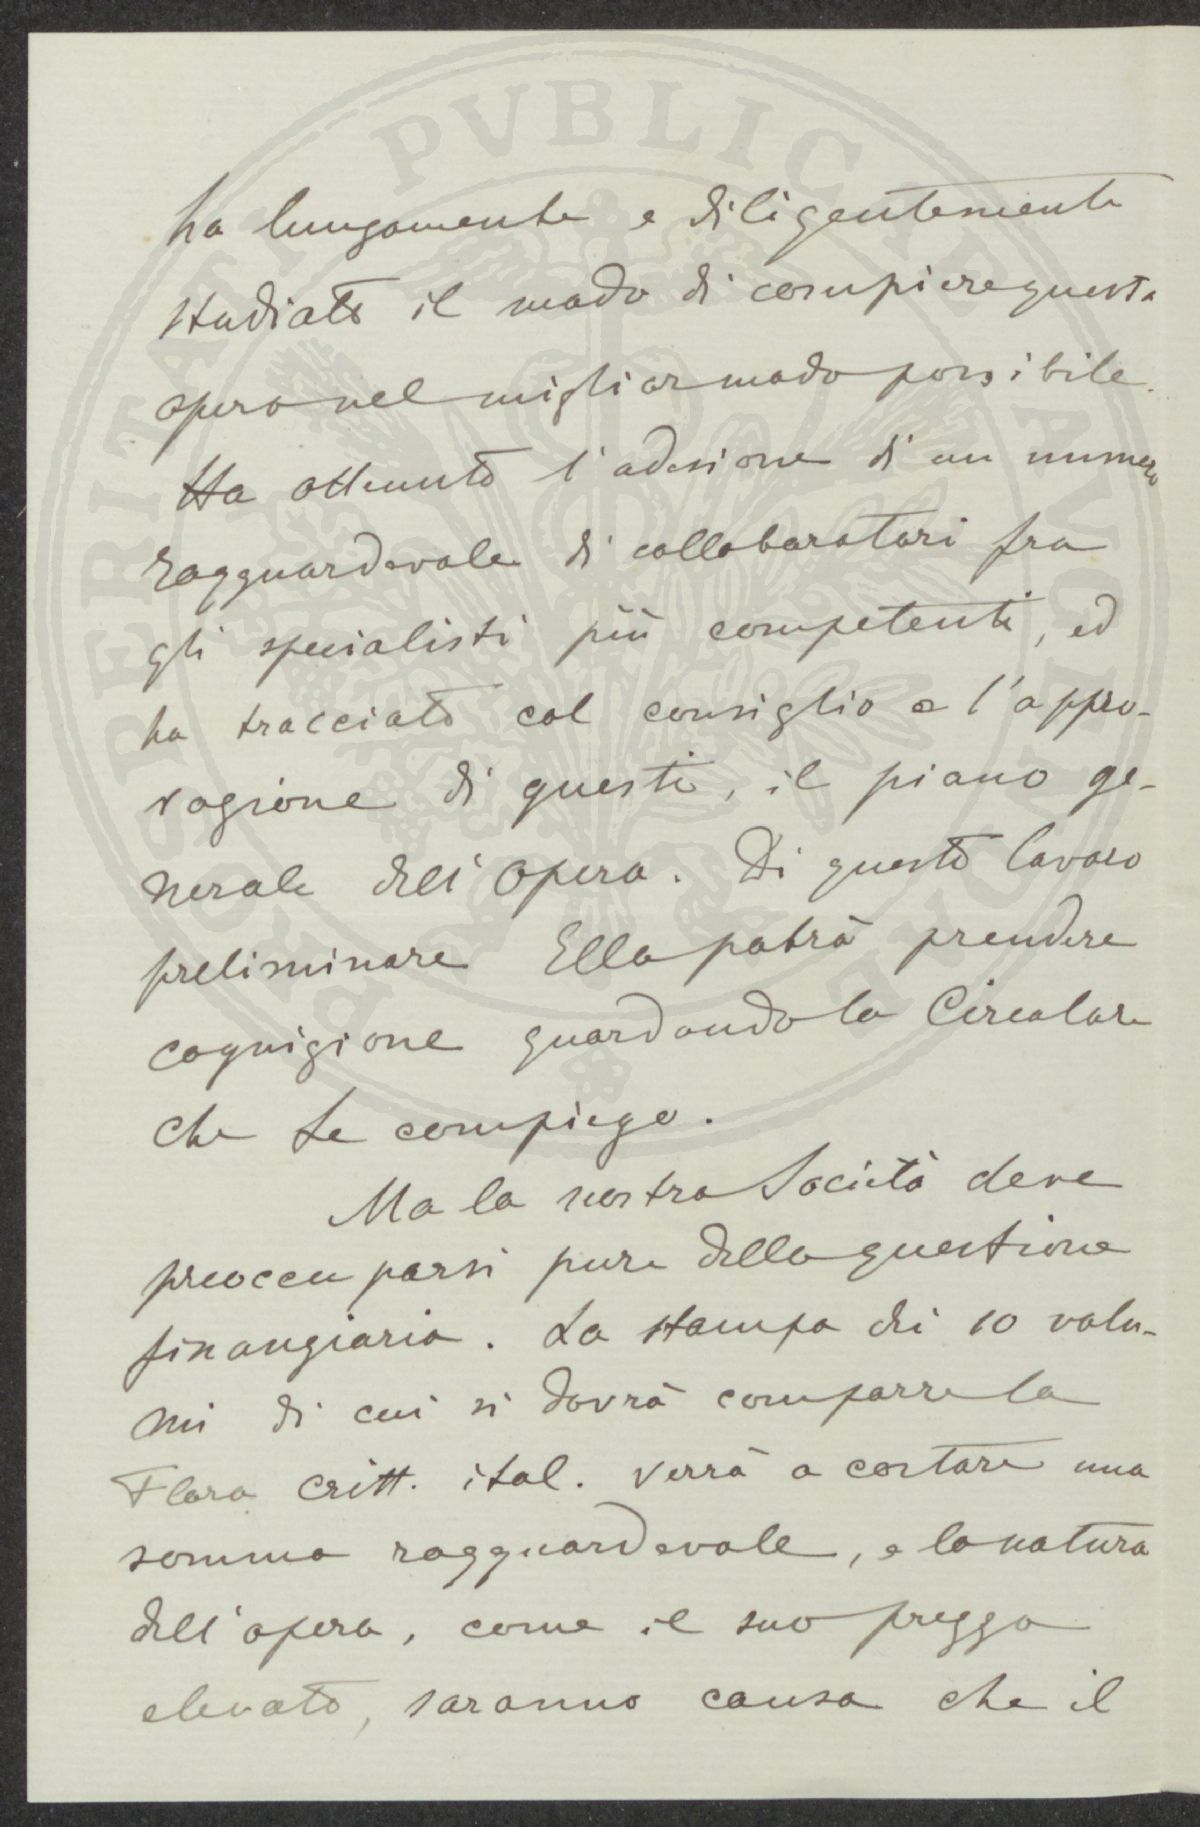 ha lungamente e diligentemente
studiato il modo di compiere questa
opera nel miglior modo possibile.
Ha ottenuto l'adesione di un numero
ragguardevole di collaboratori fra
gli specialisti più competenti, ed
ha tracciato col consiglio e l'appro-
vazione di questi, il piano ge-
nerale dell'opera. Di questo lavoro
preliminare Ella potrà prendere
cognizione guardando la Circolare
che Le compiego.
Ma la nostra Società deve
preoccuparsi pure della questione
finanziaria. La stampa dei 10 volu-
mi di cui si dovrà comporre la
Flora Critt. ital. verrà a costare una
somma ragguardevole, e la natura
dell'opera, come il suo prezzo
elevato, saranno causa che il